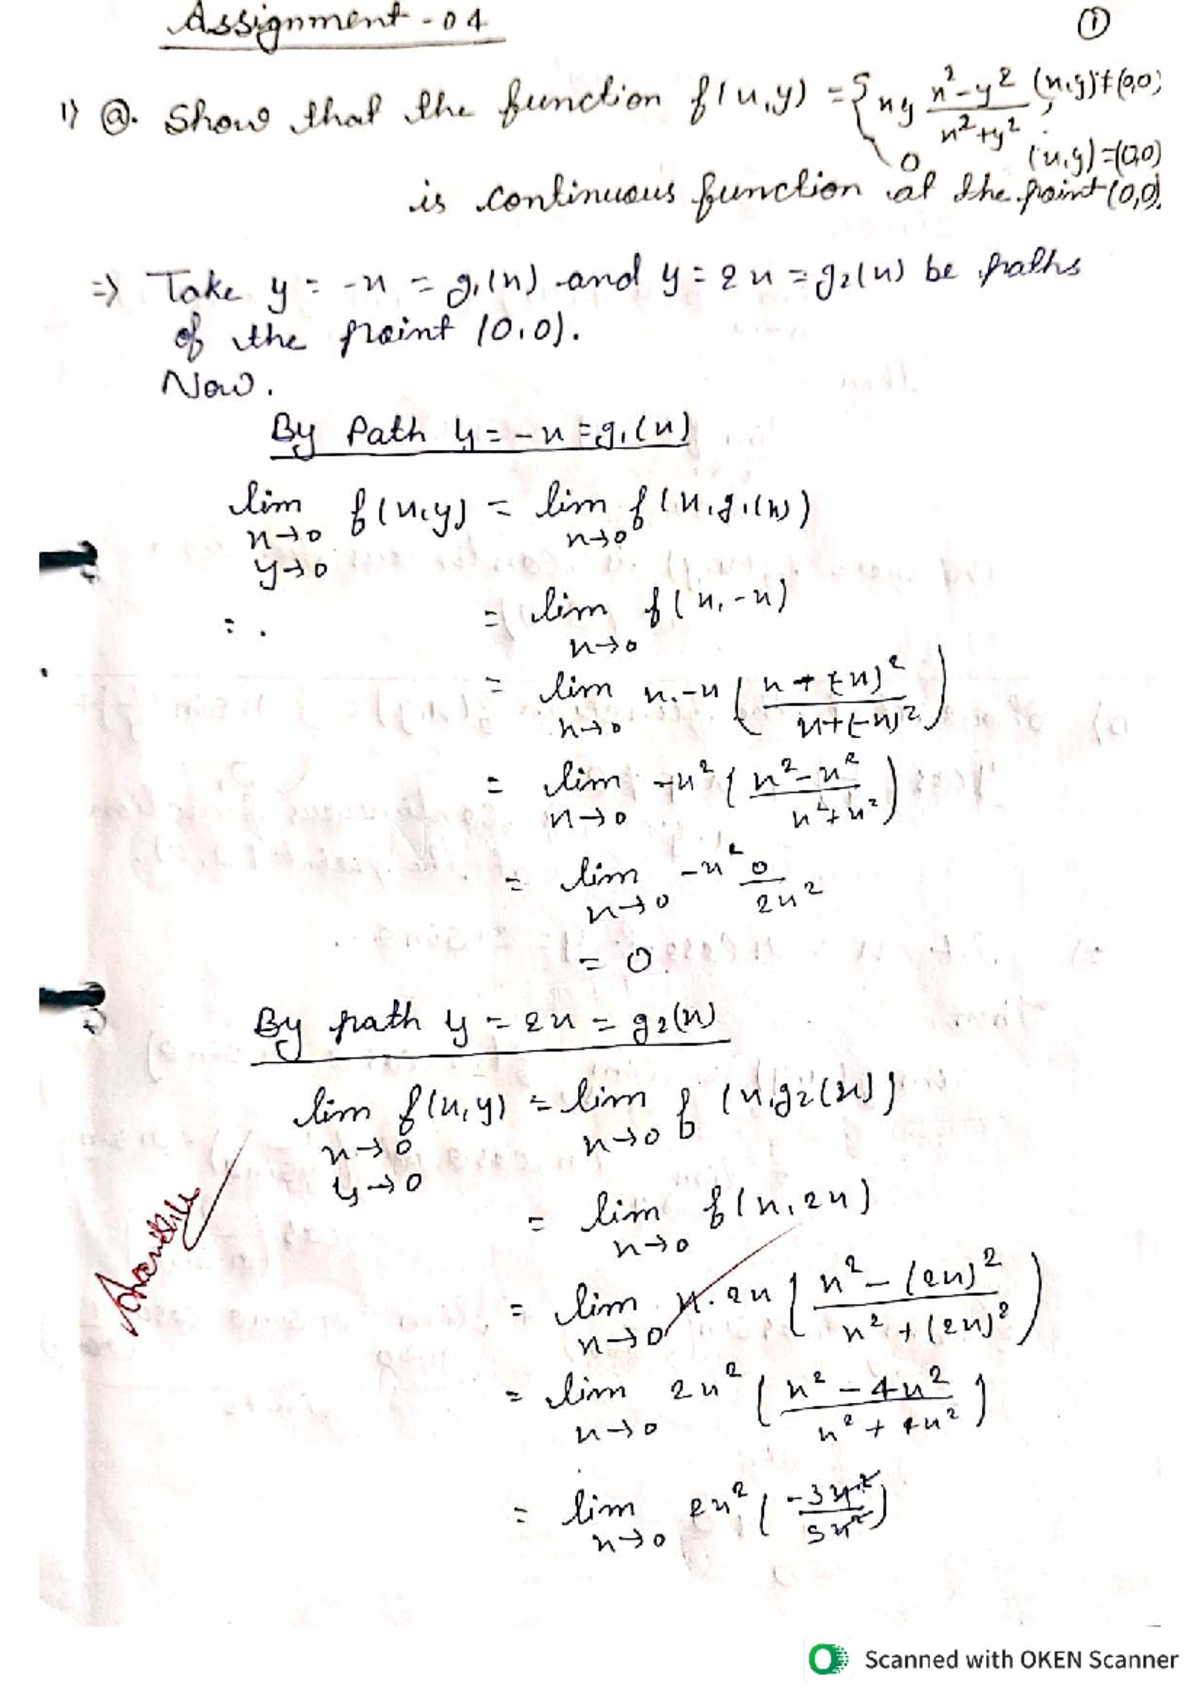 Assignment - 04
①
1) ⓐ. Show that the function f(x,y) = { xy (x² - y²)/(x² + y²), (x,y) ≠ (0,0)
0 (x,y) = (0,0)
is continuous function at the point (0,0).
=> Take y = -x = g₁(x) and y = 2x = g₂(x) be paths
of the point (0,0).
Now.
By Path y = -x = g₁(x)
lim x→0 y→0 f(x,y) = lim x→0 f(x, g₁(x))
= lim x→0 f(x, -x)
= lim x→0 x.-x ( (x + (-x)²)/(x + (-x)²) )
= lim x→0 -x² ( (x² - x²)/(x² + x²) )
= lim x→0 -x² 0/2x²
= 0
By path y = 2x = g₂(x)
lim x→0 y→0 f(x,y) = lim x→0 f(x, g₂(x))
= lim x→0 f(x, 2x)
= lim x→0 x.2x ( (x² - (2x)²)/(x² + (2x)²) )
= lim x→0 2x² ( (x² - 4x²)/(x² + 4x²) )
= lim x→0 2x² ( -3x²/5x² )
Scanned with OKEN Scanner